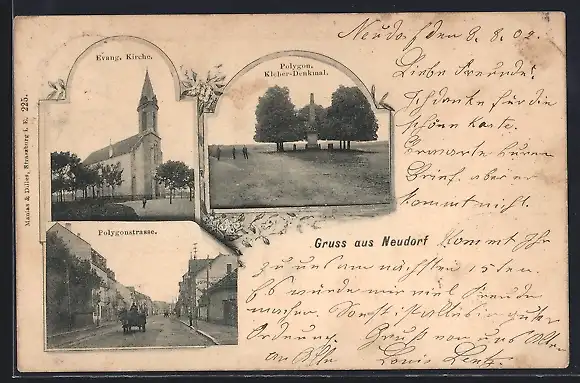 Neudorf den 8. 8. 02.
Evang. Kirche.
Polygon.
Kléber-Denkmal.
Liebe Freunde!
Ich danke für die
schöne Karte.
Erwarte Euren
Brief. aber er
kommt nicht.
225.
Manias & Dülles, Strassburg i. E.
Polygonstrasse.
Gruss aus Neudorf
Kommt Ihr
zu uns am nächsten 15ten.
Es würde mir viel Freude
machen. Sonst ist alles in guter
Ordnung. Gruss von uns Allen
an Alle Louis Lentz.